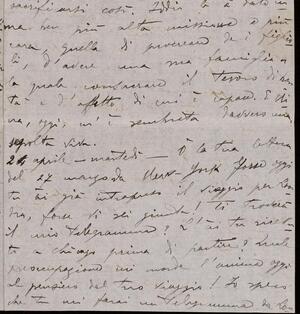 sacrificarti così. Iddio ti à dato
ma ben più alta missione e più
cara, quella di provvedere dei figli
d'avere una famiglia
la quale consacrare il tesoro di
tà e d'affetto di cui è capace. E
oggi, mi è sembrata davvero una
sepolta viva.
26 aprile – martedì – È la tua lettera
del 27 marzo da New-York. Forse oggi
tu ài già intrapreso il viaggio per
forse ti sei giunta! Ti troverà
il mio telegramma? L'ài tu ricevuto
a Chicago prima di partire? Quale
preoccupazione mi morde l'anima oggi
al pensiero del tuo viaggio! Io spero
che tu mi farai un telegramma da